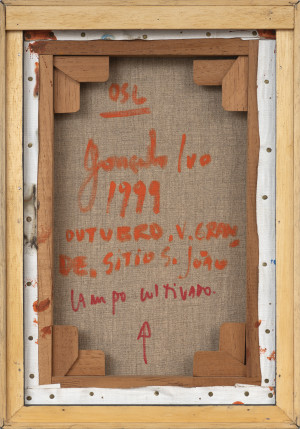 OSL
Gonçalo Ivo
1999
OUTUBRO. V. GRAN
DE. SÍTIO S. JOÃO
Campo cultivado.